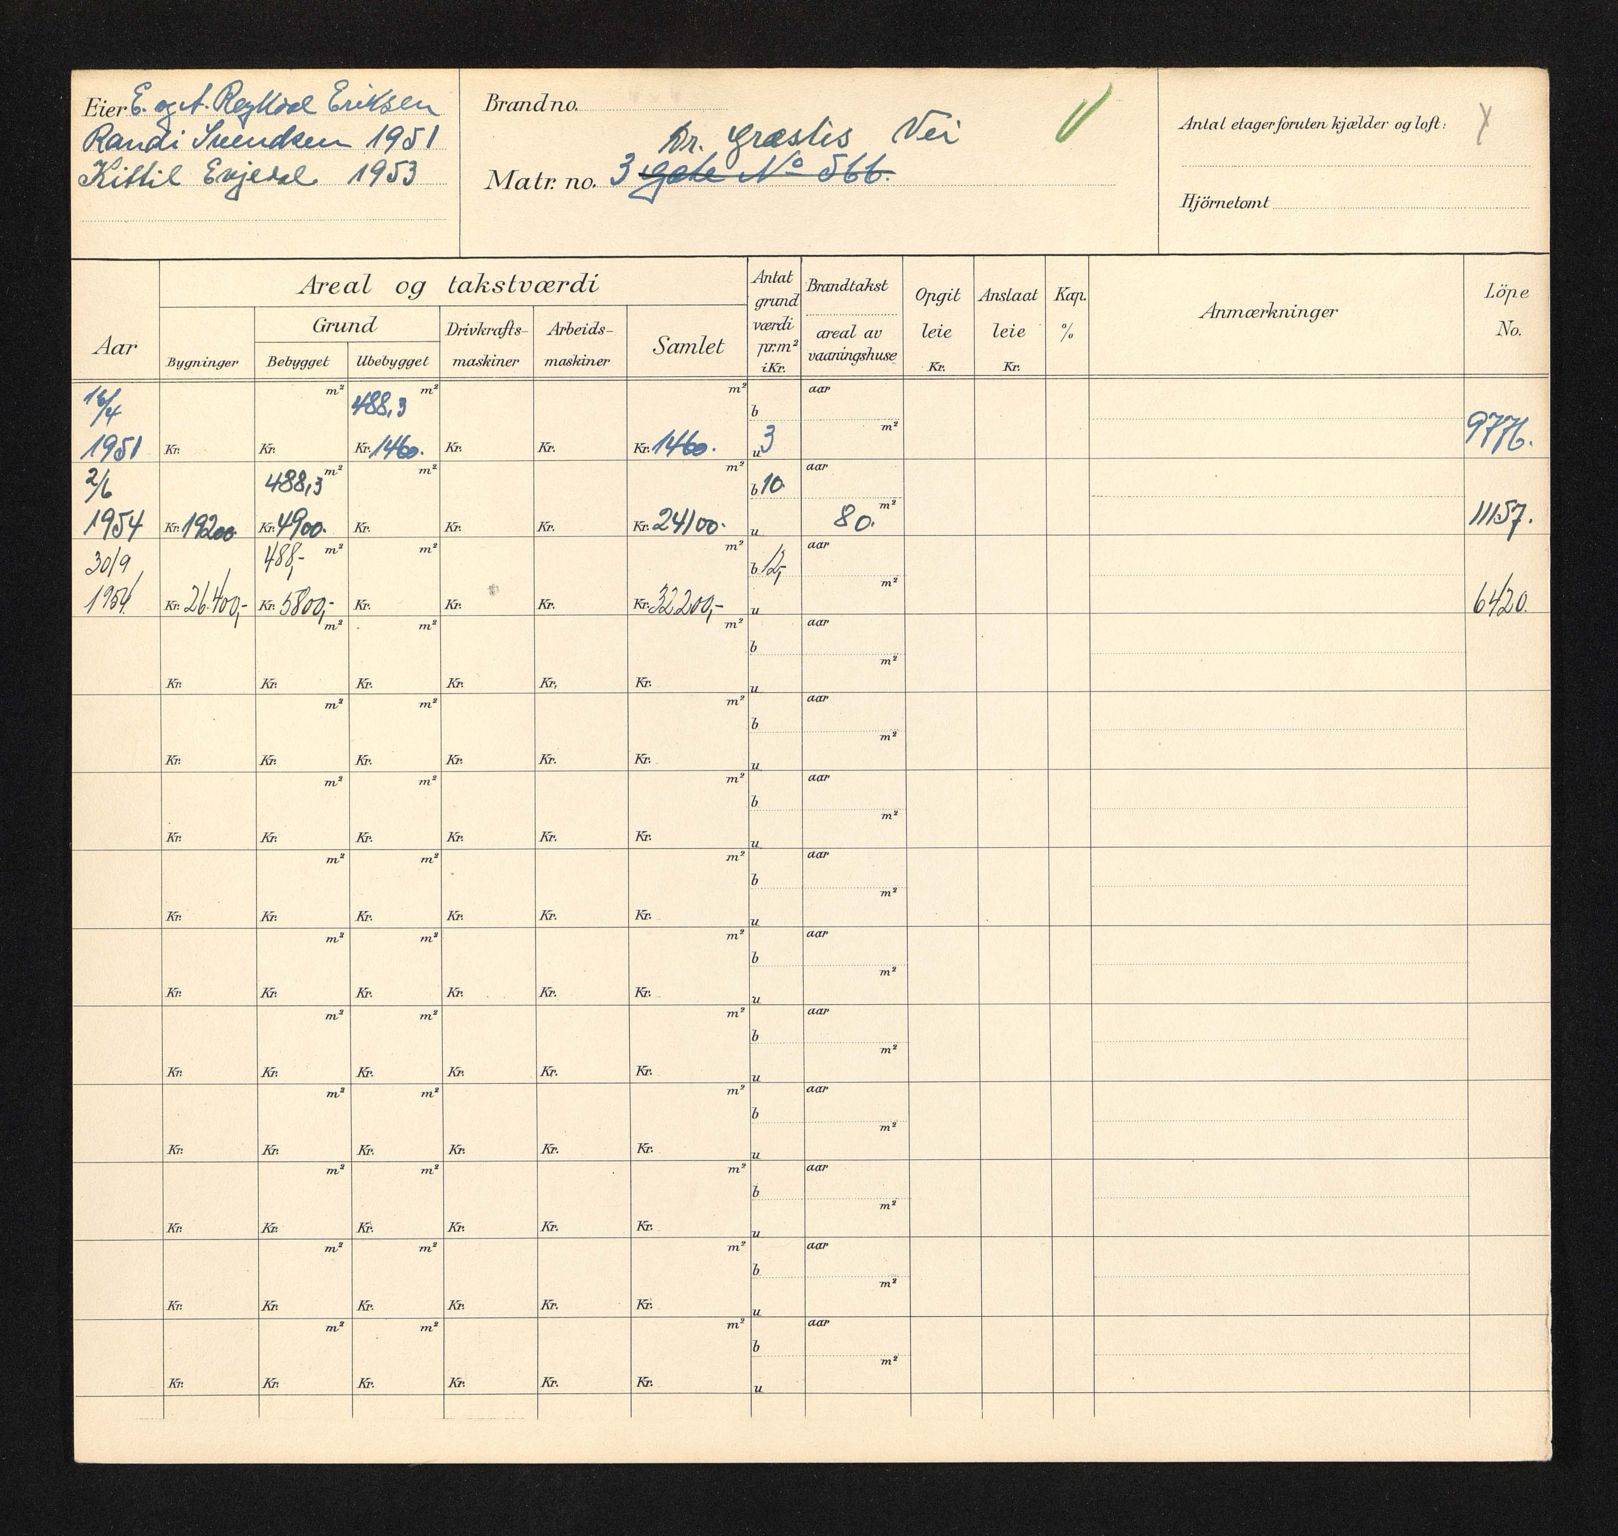 Eier E. og A. Reykdal Eriksen
Randi Svendsen 1951
Kittil Evjedal 1953
Brand no.
Dr. Græslis Vei
Matr. no. 3 gate No 566.
Antal etager foruten kjælder og loft:
Hjörnetomt
Aar
Areal og takstværdi
Bygninger
Grund
Bebygget Ubebygget
Drivkrafts-maskiner
Arbeids-maskiner
Samlet
Antat grund værdi pr. m² i Kr.
Brandtakst
areal av vaaningshuse
Opgit leie Kr.
Anslaat leie Kr.
Kap. %
Anmærkninger
Löpe No.
16/4 m² 488,3 m² m² b aar
1951 Kr. Kr. Kr. 1460. Kr. Kr. Kr. 1460. u 3 m² 9776.
2/6 488,3 m² m² m² b 10 aar
1954 Kr. 19200 Kr. 4900. Kr. Kr. Kr. Kr. 24100. u 80. m² 11157.
30/9 488,- m² m² m² b 12,- aar
Kr. 26.400,- Kr. 5800,- Kr. Kr. Kr. Kr. 32.200,- u m² 6420.
m² m² m² b aar
Kr. Kr. Kr. Kr. Kr. Kr. u m²
m² m² m² b aar
Kr. Kr. Kr. Kr. Kr. Kr. u m²
m² m² m² b aar
Kr. Kr. Kr. Kr. Kr. Kr. u m²
m² m² m² b aar
Kr. Kr. Kr. Kr. Kr. Kr. u m²
m² m² m² b aar
Kr. Kr. Kr. Kr. Kr. Kr. u m²
m² m² m² b aar
Kr. Kr. Kr. Kr. Kr. Kr. u m²
m² m² m² b aar
Kr. Kr. Kr. Kr. Kr. Kr. u m²
m² m² m² b aar
Kr. Kr. Kr. Kr. Kr. Kr. u m²
m² m² m² b aar
Kr. Kr. Kr. Kr. Kr. Kr. u m²
m² m² m² b aar
Kr. Kr. Kr. Kr. Kr. Kr. u m²